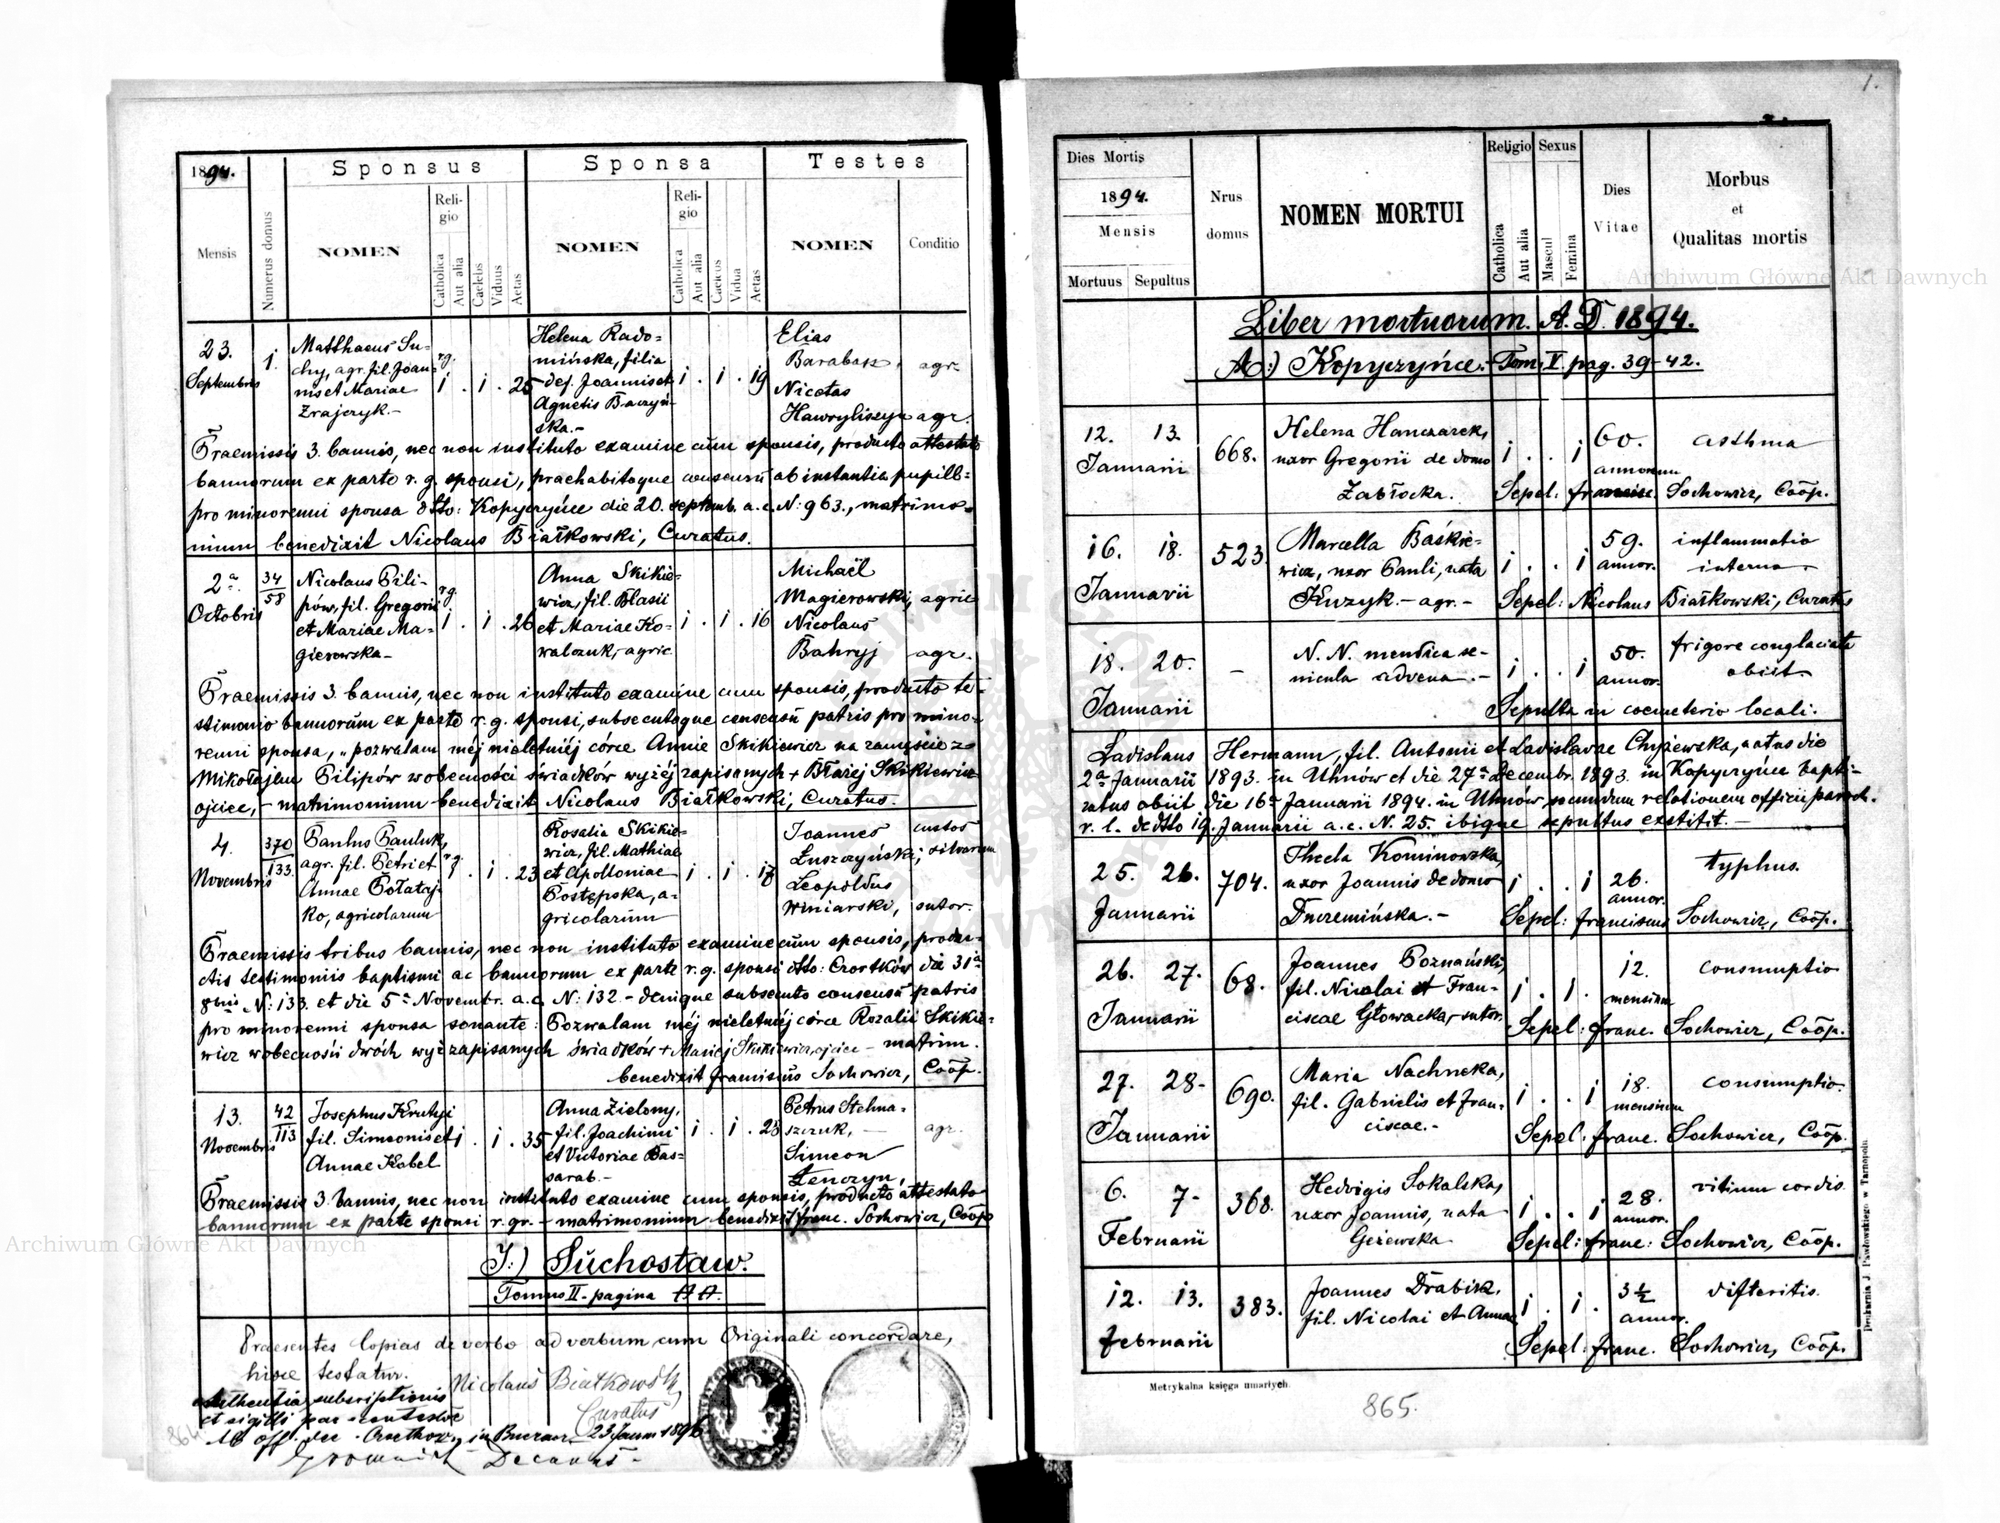 1894.
Sponsus
Sponsa
Testes
Mensis
Numerus domus
NOMEN
Religio
Catholica
Aut alia
Caelebs
Viduus
Aetas
NOMEN
Religio
Catholica
Aut alia
Vidua
Aetas
NOMEN
Conditio
23.
Septembris
1.
Matthaeus Su-
chy, agr. fil. Joan-
nis et Mariae
Zrajczyk.-
rg.
i . i . 25
Helena Rado-
mińska, filia
def. Joannis et
Agnetis Baczyń-
ska.-
i . i . 19
Elias
Barabasz, agr.
Nicolas
Hawryliszyn agr.
Praemissis 3. bannis, nec non instituto examine cum sponsis, producto attestato
bannorum ex parte r. g. sponsi, praehabitoque consensu ab instantia pupill-
pro minorenni sponsa dtto: Kopyczyńce die 20. septemb. a. c. N: 963., matrimo-
nium benedixit Nicolaus Białkowski, Curatus.
2a
Octobris
34
58
Nicolaus Pili-
pów, fil. Gregorii
et Mariae Ma-
gierowska-
rg.
i . i . 26
Anna Skikie-
wicz, fil. Blasii
et Mariae Ko-
walczuk, agric
i . i . 16
Michaël
Magierowski, agric
Nicolaus
Bahryj agr.
Praemissis 3. bannis, nec non instituto examine cum sponsis, producto te-
stimonio bannorum ex parte r. g. sponsi, subsecutoque consensu patris pro mino-
renni sponsa, „pozwalam méj nieletniéj córce Annie Skikiewicz na zamęście z-
Mikołajem Pilipów w obecności świadków wyżéj zapisanych + Błażej Skikiewicz
ojciec, - matrimonium benedixit Nicolaus Białkowski, Curatus.
4.
Novembris
370
133.
Paulus Pauluk,
agr. fil. Petri et
Annae Potataj-
ko, agricolarum
rg.
. i . 23
Rosalia Skikie-
wicz, fil. Mathiae
et Apolloniae
Postępska, a-
gricolarum
i . i . 17
Joannes custos
Łuszczyński, silvarum
Leopoldus
Winiarski, sutor.
Praemissis tribus bannis, nec non instituto examine cum sponsis, produ-
ctis testimoniis baptismi ac bannorum ex parte r. g. sponsi dtto: Czortków die 31a
8bris N: 133. et die 5a Novembr. a. c. N: 132 - denique subsecuto consensu patris
pro minorenni sponsa sonante: Pozwalam méj nieletniéj córce Rozalii Skikie-
wicz w obecności dwóch wyż zapisanych świadków + Maciej Skikiewicz, ojciec - matrim.
benedixit franciscus Sochowicz, Coop.
13.
Novembris
42
113
Josephus Krutyj
fil. Simeonis et
Annae Kobel
i . i . 35
Anna Zielony,
fil. Joachimi
et Victoriae Bas-
sarab.-
i . i . 28
Petrus Stelma-
szczuk, - agr.
Simeon
Łenczyn,
Praemissis 3. bannis, nec non instituto examine cum sponsis, producto attestato
bannorum ex parte sponsi r. gr. - matrimonium benedixit franc. Sochowicz, Coop
J.) Suchostaw.
Tomus II - pagina
Praesentes Copias de verbo ad verbum cum Originali concordare,
hisce testatur.
Nicolaus Białkowski
Curatus
subscriptionis
et sigilli
Ab off. dec. in 23 1896
Decanus -
1.
Dies Mortis
1894.
Mensis
Mortuus Sepultus
Nrus
domus
NOMEN MORTUI
Religio
Catholica
Aut alia
Sexus
Mascul
Femina
Dies
Vitae
Morbus
et
Qualitas mortis
Liber mortuorum. A. D. 1894.
A:) Kopyczyńce. - Tom. V. pag. 39-42.
12. 13.
Januarii
668.
Helena Hanczarek,
uxor Gregorii de domo
Zabłocka.
i . . i
60.
annorum
asthma
Sepel: francisc. Sochowicz, Coop.
16. 18.
Januarii
523
Marcella Baśkie-
wicz, uxor Pauli, nata
Kuzyk.- agr.-
i . . i
59.
annor.
inflammatio
interna
Sepel: Nicolaus Białkowski, Curatus
18. 20.
Januarii
-
N. N. mendica se-
nicula advena.-
i . . i
50.
annor.
frigore conglaciata
obiit.
Sepulta in coemeterio locali.
Ladislaus Hermann, fil. Antonii et Ladislavae Chyżewska, natus die
2a Januarii 1893. in Uhnów et die 27a Decembr. 1893. in Kopyczyńce bapti-
zatus obiit die 16a Januarii 1894. in Uhnów, secundum relationem officii paroch.
r. l. de dtto 19. Januarii a. c. N. 25. ibique sepultus exstitit.-
25. 26.
Januarii
704.
Thecla Kominowska,
uxor Joannis de domo
Dwrzemińska.-
i . . i
26.
annor.
typhus.
Sepel: franciscus Sochowicz, Coop.
26. 27.
Januarii
68.
Joannes Poznański,
fil. Nicolai et Fran-
ciscae Głowacka, sutor.
i . i .
12.
mensium
consumptio
Sepel: franc. Sochowicz, Coop.
27. 28-
Januarii
690.
Maria Nachneka,
fil. Gabrielis et Fran-
ciscae.-
i . . i
18.
mensium
consumptio.
Sepel: franc. Sochowicz, Coop.
6. 7-
Februarii
368.
Hedvigis Sokalska,
uxor Joannis, nata
Geżewska
i . . i
28.
annor.
vitium cordis
Sepel: franc: Sochowicz, Coop.
12. 13.
februarii
383.
Joannes Drabik,
fil. Nicolai et Annae
i . i .
3½
annor.
difteritis.
Sepel: franc. Sochowicz, Coop.
Metrykalna księga umarłych.
Drukarnia J. Pawłowskiego w Tarnopolu.
865.
Archiwum Główne Akt Dawnych
Archiwum Główne Akt Dawnych